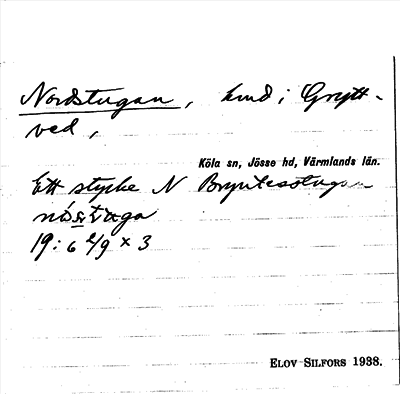 Nordstugan, hmd i Grytt-
ved,
Köla sn, Jösse hd, Värmlands län.
Ett stycke N Bryntesstugan
19: 6 2/9 x 3
ELOV SILFORS 1938.